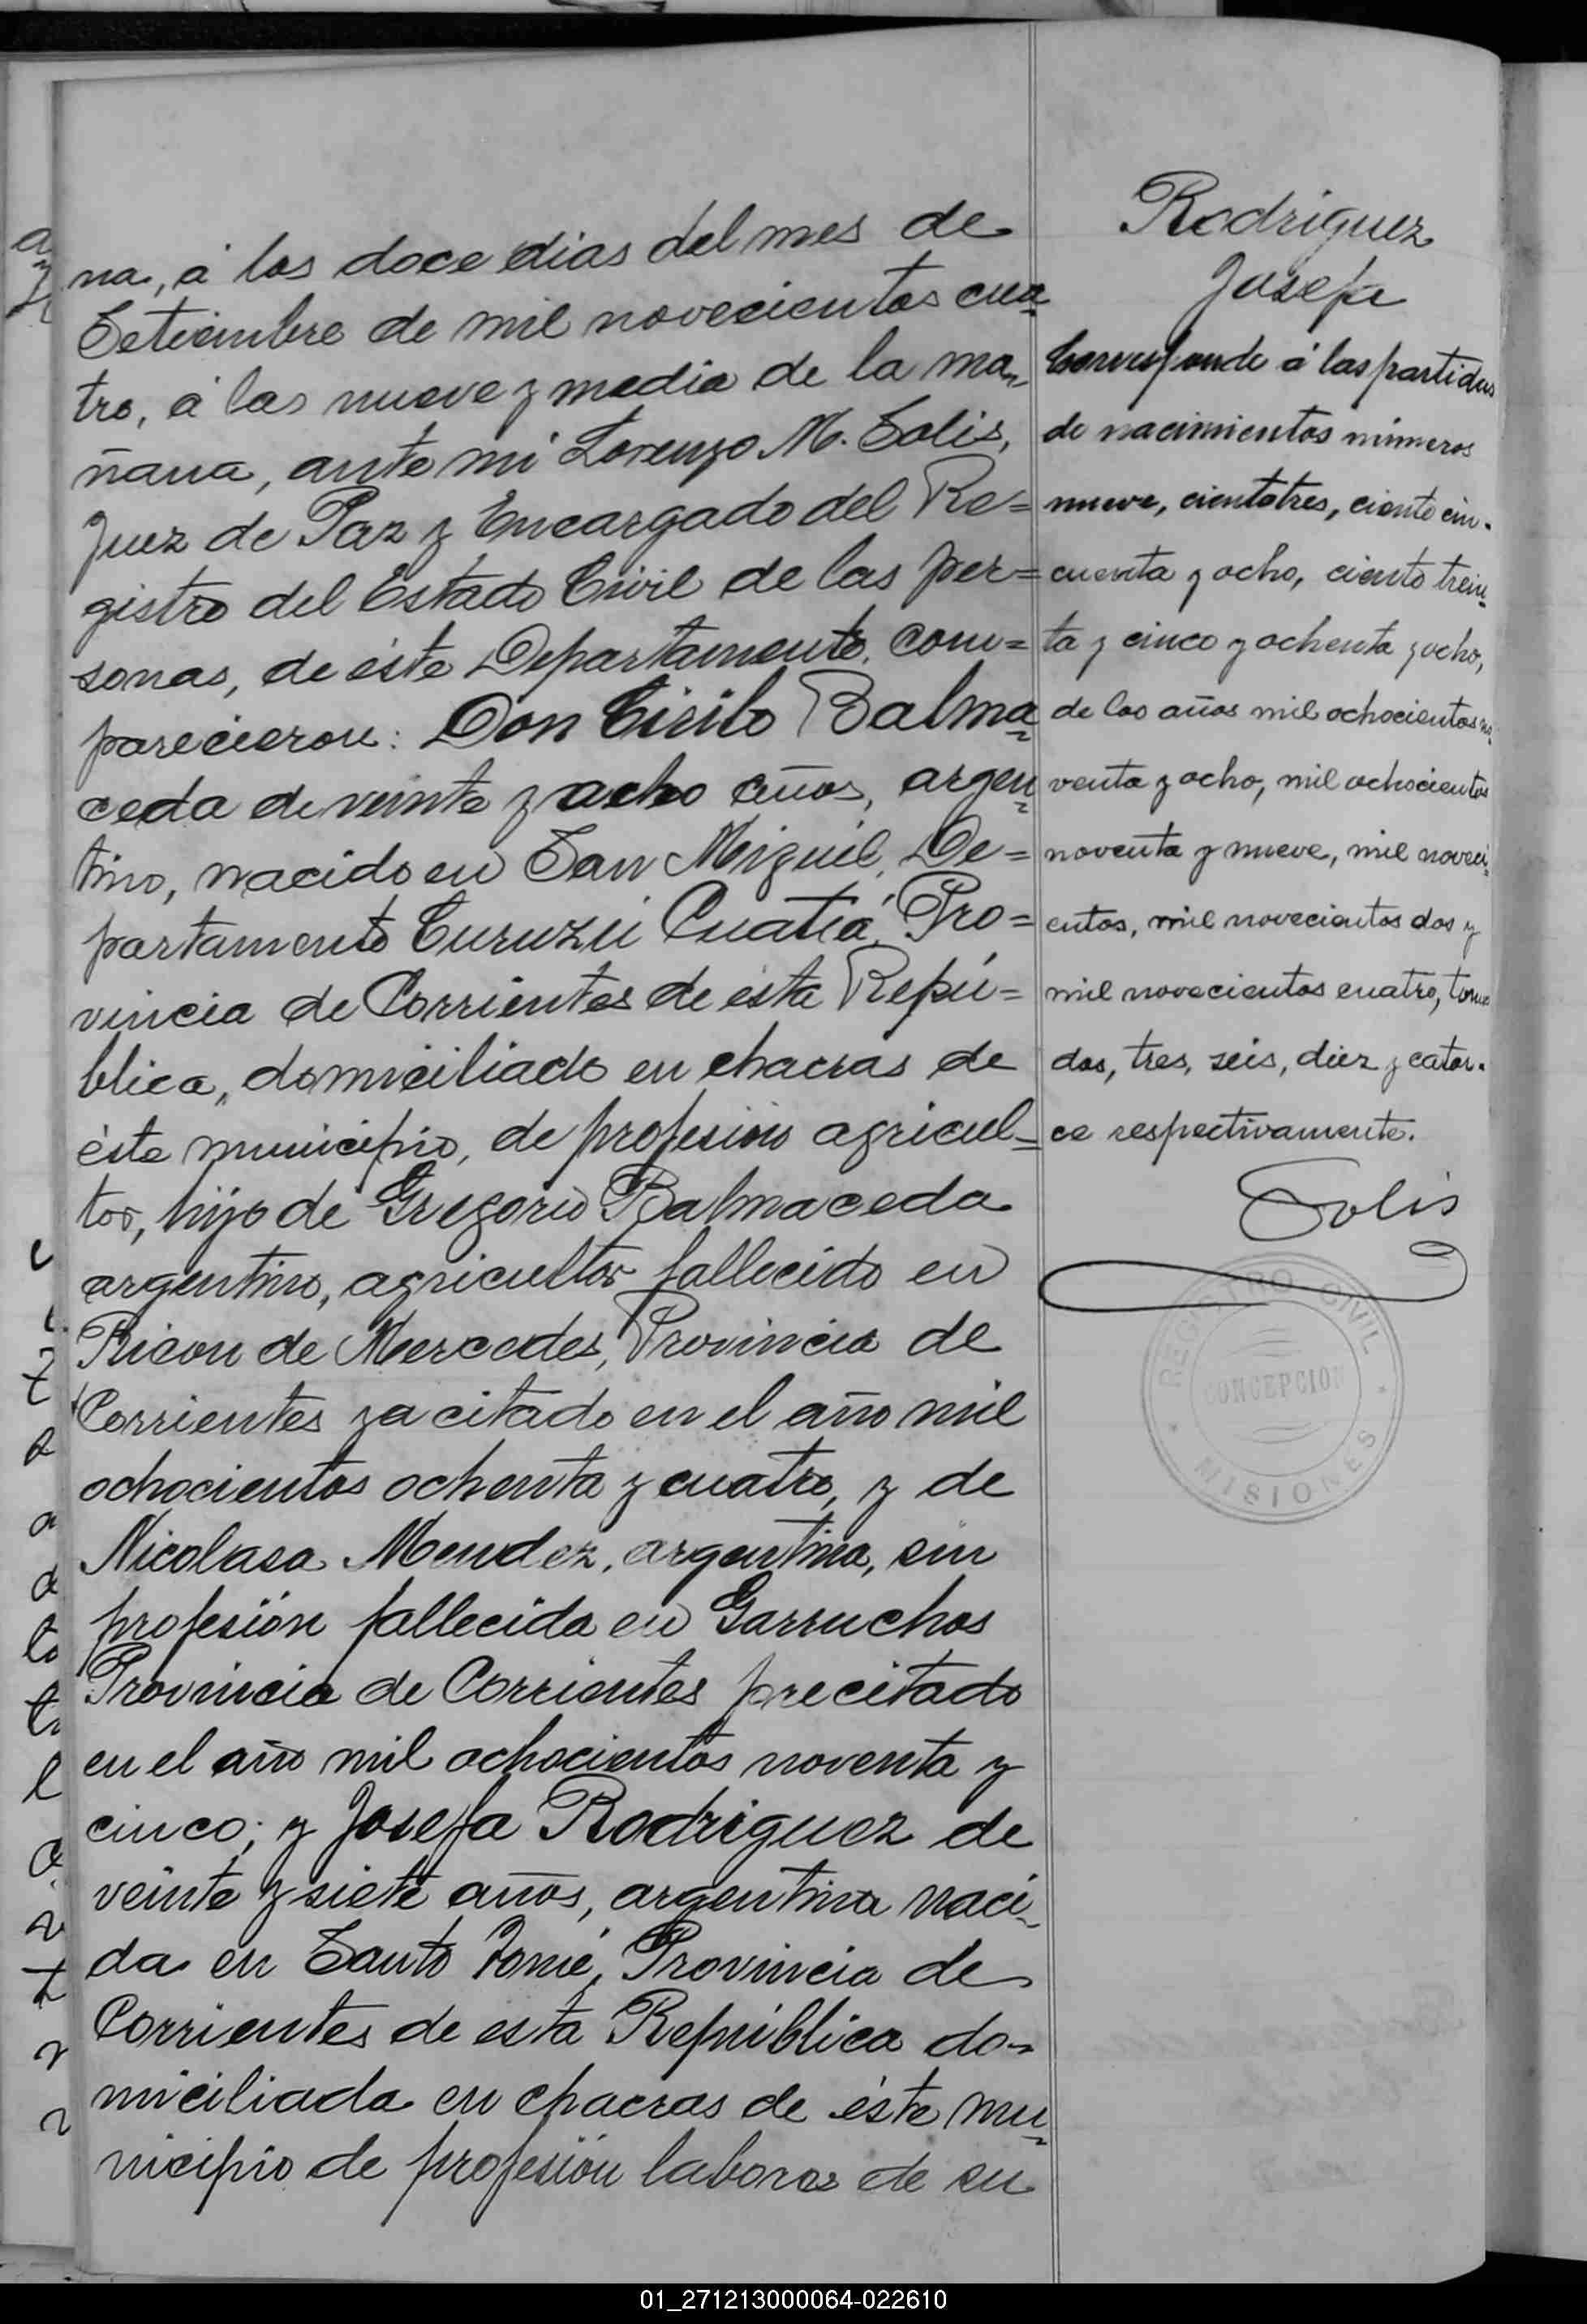 na, á los doce dias del mes de
Setiembre de mil novecientos cua=
tro, á las nueve y media de la ma=
ñana, ante mi Lorenzo M. Solis,
Juez de Paz y Encargado del Re=
gistro del Estado Civil de las per=
sonas, de éste Departamento, com=
parecieron: Don Cirilo Balma=
ceda de veinte y ocho años, argen=
tino, nacido en San Miguel, De=
partamento Curuzú Cuatiá, Pro=
vincia de Corrientes de esta Repú=
blica, domiciliado en chacras de
éste municipio, de profesión agricul=
tor, hijo de Gregorio Balmaceda
argentino, agricultor fallecido en
Ricon de Mercedes, Provincia de
Corrientes ya citado en el año mil
ochocientos ochenta y cuatro, y de
Nicolasa Mendez, argentina, sin
profesión fallecida en Garruchos
Provincia de Corrientes precitado
en el año mil ochocientos noventa y
cinco; y Josefa Rodriguez de
veinte y siete años, argentina naci=
da en Santo Tomé, Provincia de
Corrientes de esta República do=
miciliada en chacras de éste mu=
nicipio de profesión labores de su
Rodriguez
Josefa
Corresponde á las partidas
de nacimientos números
nueve, cientotres, ciento cin-
cuenta y ocho, ciento trein=
ta y cinco y ochenta y ocho,
de los años mil ochocientos no=
venta y ocho, mil ochocientos
noventa y nueve, mil noveci=
entos, mil novecientos dos y
mil novecientos cuatro, tomos
dos, tres, seis, diez y cator-
ce respectivamente.
Solis
REGISTRO CIVIL
CONCEPCION
MISIONES
01_271213000064-022610